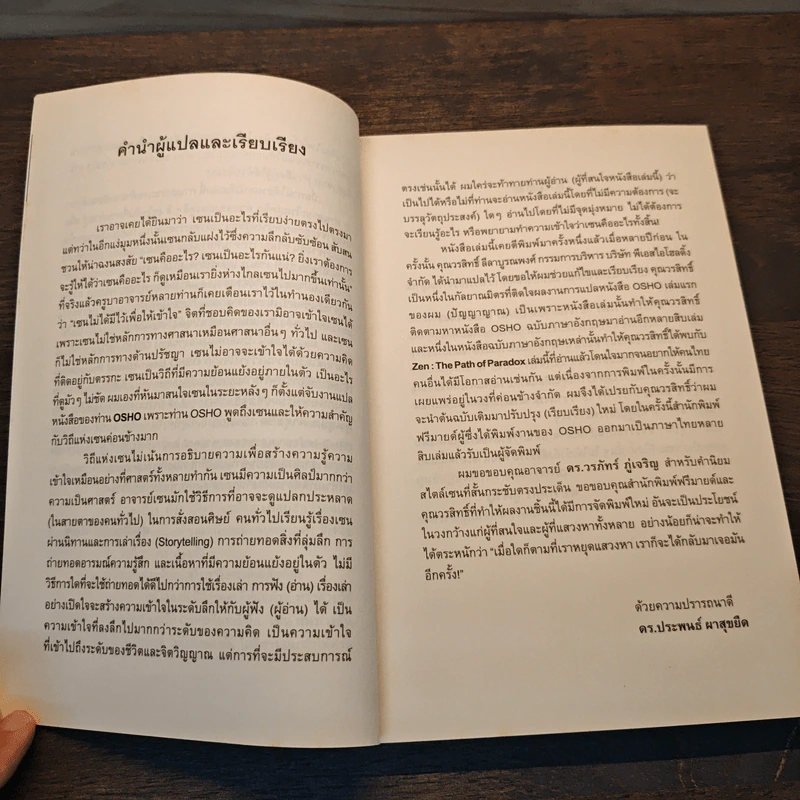 คำนำผู้แปลและเรียบเรียง
เราอาจเคยได้ยินมาว่า เซนเป็นอะไรที่เรียบง่ายตรงไปตรงมา
แต่ทว่าในอีกแง่มุมหนึ่งนั้นเซนกลับแฝงไว้ซึ่งความลึกลับซับซ้อน สับสน
ชวนให้น่าฉงนสงสัย "เซนคืออะไร? เซนเป็นอะไรกันแน่? ยิ่งเราต้องการ
จะรู้ให้ได้ว่าเซนคืออะไร ก็ดูเหมือนเรายิ่งห่างไกลเซนไปมากขึ้นเท่านั้น"
ที่จริงแล้วครูบาอาจารย์หลายท่านก็เคยเตือนเราไว้ในทำนองเดียวกัน
ว่า "เซนไม่ได้มีไว้เพื่อให้เข้าใจ" จิตที่ชอบคิดของเรามิอาจเข้าใจเซนได้
เพราะเซนไม่ใช่หลักการทางศาสนาเหมือนศาสนาอื่นๆ ทั่วไป และเซน
ก็ไม่ใช่หลักการทางด้านปรัชญา เซนไม่อาจจะเข้าใจได้ด้วยความคิด
ที่ติดอยู่กับตรรกะ เซนเป็นวิถีที่มีความย้อนแย้งอยู่ภายในตัว เป็นอะไร
ที่ดูมัวๆ ไม่ชัด ผมเองที่หันมาสนใจเซนในระยะหลังๆ ก็ตั้งแต่จับงานแปล
หนังสือของท่าน OSHO เพราะท่าน OSHO พูดถึงเซนและให้ความสำคัญ
กับวิถีแห่งเซนค่อนข้างมาก
วิถีแห่งเซนไม่เน้นการอธิบายความเพื่อสร้างความรู้ความ
เข้าใจเหมือนอย่างที่ศาสตร์ทั้งหลายทำกัน เซนมีความเป็นศิลป์มากกว่า
ความเป็นศาสตร์ อาจารย์เซนมักใช้วิธีการที่อาจจะดูแปลกประหลาด
(ในสายตาของคนทั่วไป) ในการสั่งสอนศิษย์ คนทั่วไปเรียนรู้เรื่องเซน
ผ่านนิทานและการเล่าเรื่อง (Storytelling) การถ่ายทอดสิ่งที่ลุ่มลึก การ
ถ่ายทอดอารมณ์ความรู้สึก และเนื้อหาที่มีความย้อนแย้งอยู่ในตัว ไม่มี
วิธีการใดที่จะใช้ถ่ายทอดได้ดีไปกว่าการใช้เรื่องเล่า การฟัง (อ่าน) เรื่องเล่า
อย่างเปิดใจจะสร้างความเข้าใจในระดับลึกให้กับผู้ฟัง (ผู้อ่าน) ได้ เป็น
ความเข้าใจที่ลงลึกไปมากกว่าระดับของความคิด เป็นความเข้าใจ
ที่เข้าไปถึงระดับของชีวิตและจิตวิญญาณ แต่การที่จะมีประสบการณ์
ตรงเช่นนั้นได้ ผมใคร่จะท้าทายท่านผู้อ่าน (ผู้ที่สนใจหนังสือเล่มนี้) ว่า
เป็นไปได้หรือไม่ที่ท่านจะอ่านหนังสือเล่มนี้โดยที่ไม่มีความต้องการ (จะ
บรรลุวัตถุประสงค์) ใดๆ อ่านไปโดยที่ไม่มีจุดมุ่งหมาย ไม่ได้ต้องการ
จะเรียนรู้อะไร หรือพยายามทำความเข้าใจว่าเซนคืออะไรทั้งสิ้น!
หนังสือเล่มนี้เคยตีพิมพ์มาครั้งหนึ่งแล้วเมื่อหลายปีก่อน ใน
ครั้งนั้น คุณวรสิทธิ์ ลีลาบูรณพงศ์ กรรมการบริหาร บริษัท พีเอสไอโฮลดิ้ง
จำกัด ได้นำมาแปลไว้ โดยขอให้ผมช่วยแก้ไขและเรียบเรียง คุณวรสิทธิ์
เป็นหนึ่งในกัลยาณมิตรที่ติดใจผลงานการแปลหนังสือ OSHO เล่มแรก
ของผม (ปัญญาญาณ) เป็นเพราะหนังสือเล่มนั้นทำให้คุณวรสิทธิ์
ติดตามหาหนังสือ OSHO ฉบับภาษาอังกฤษมาอ่านอีกหลายสิบเล่ม
และหนึ่งในหนังสือฉบับภาษาอังกฤษเหล่านั้นทำให้คุณวรสิทธิ์ได้พบกับ
Zen : The Path of Paradox เล่มนี้ที่อ่านแล้วโดนใจมากจนอยากให้คนไทย
คนอื่นได้มีโอกาสอ่านเช่นกัน แต่เนื่องจากการพิมพ์ในครั้งนั้นมีการ
เผยแพร่อยู่ในวงที่ค่อนข้างจำกัด ผมจึงได้เปรยกับคุณวรสิทธิ์ว่าผม
จะนำต้นฉบับเดิมมาปรับปรุง (เรียบเรียง) ใหม่ โดยในครั้งนี้สำนักพิมพ์
ฟรีมายด์ผู้ซึ่งได้พิมพ์งานของ OSHO ออกมาเป็นภาษาไทยหลาย
สิบเล่มแล้วรับเป็นผู้จัดพิมพ์
ผมขอขอบคุณอาจารย์ ดร.วรภัทร์ ภู่เจริญ สำหรับคำนิยม
สไตล์เซนที่สั้นกระชับตรงประเด็น ขอขอบคุณสำนักพิมพ์ฟรีมายด์และ
คุณวรสิทธิ์ที่ทำให้ผลงานชิ้นนี้ได้มีการจัดพิมพ์ใหม่ อันจะเป็นประโยชน์
ในวงกว้างแก่ผู้ที่สนใจและผู้ที่แสวงหาทั้งหลาย อย่างน้อยก็น่าจะทำให้
ได้ตระหนักว่า "เมื่อใดก็ตามที่เราหยุดแสวงหา เราก็จะได้กลับมาเจอมัน
อีกครั้ง!"
ด้วยความปรารถนาดี
ดร.ประพนธ์ ผาสุขยืด